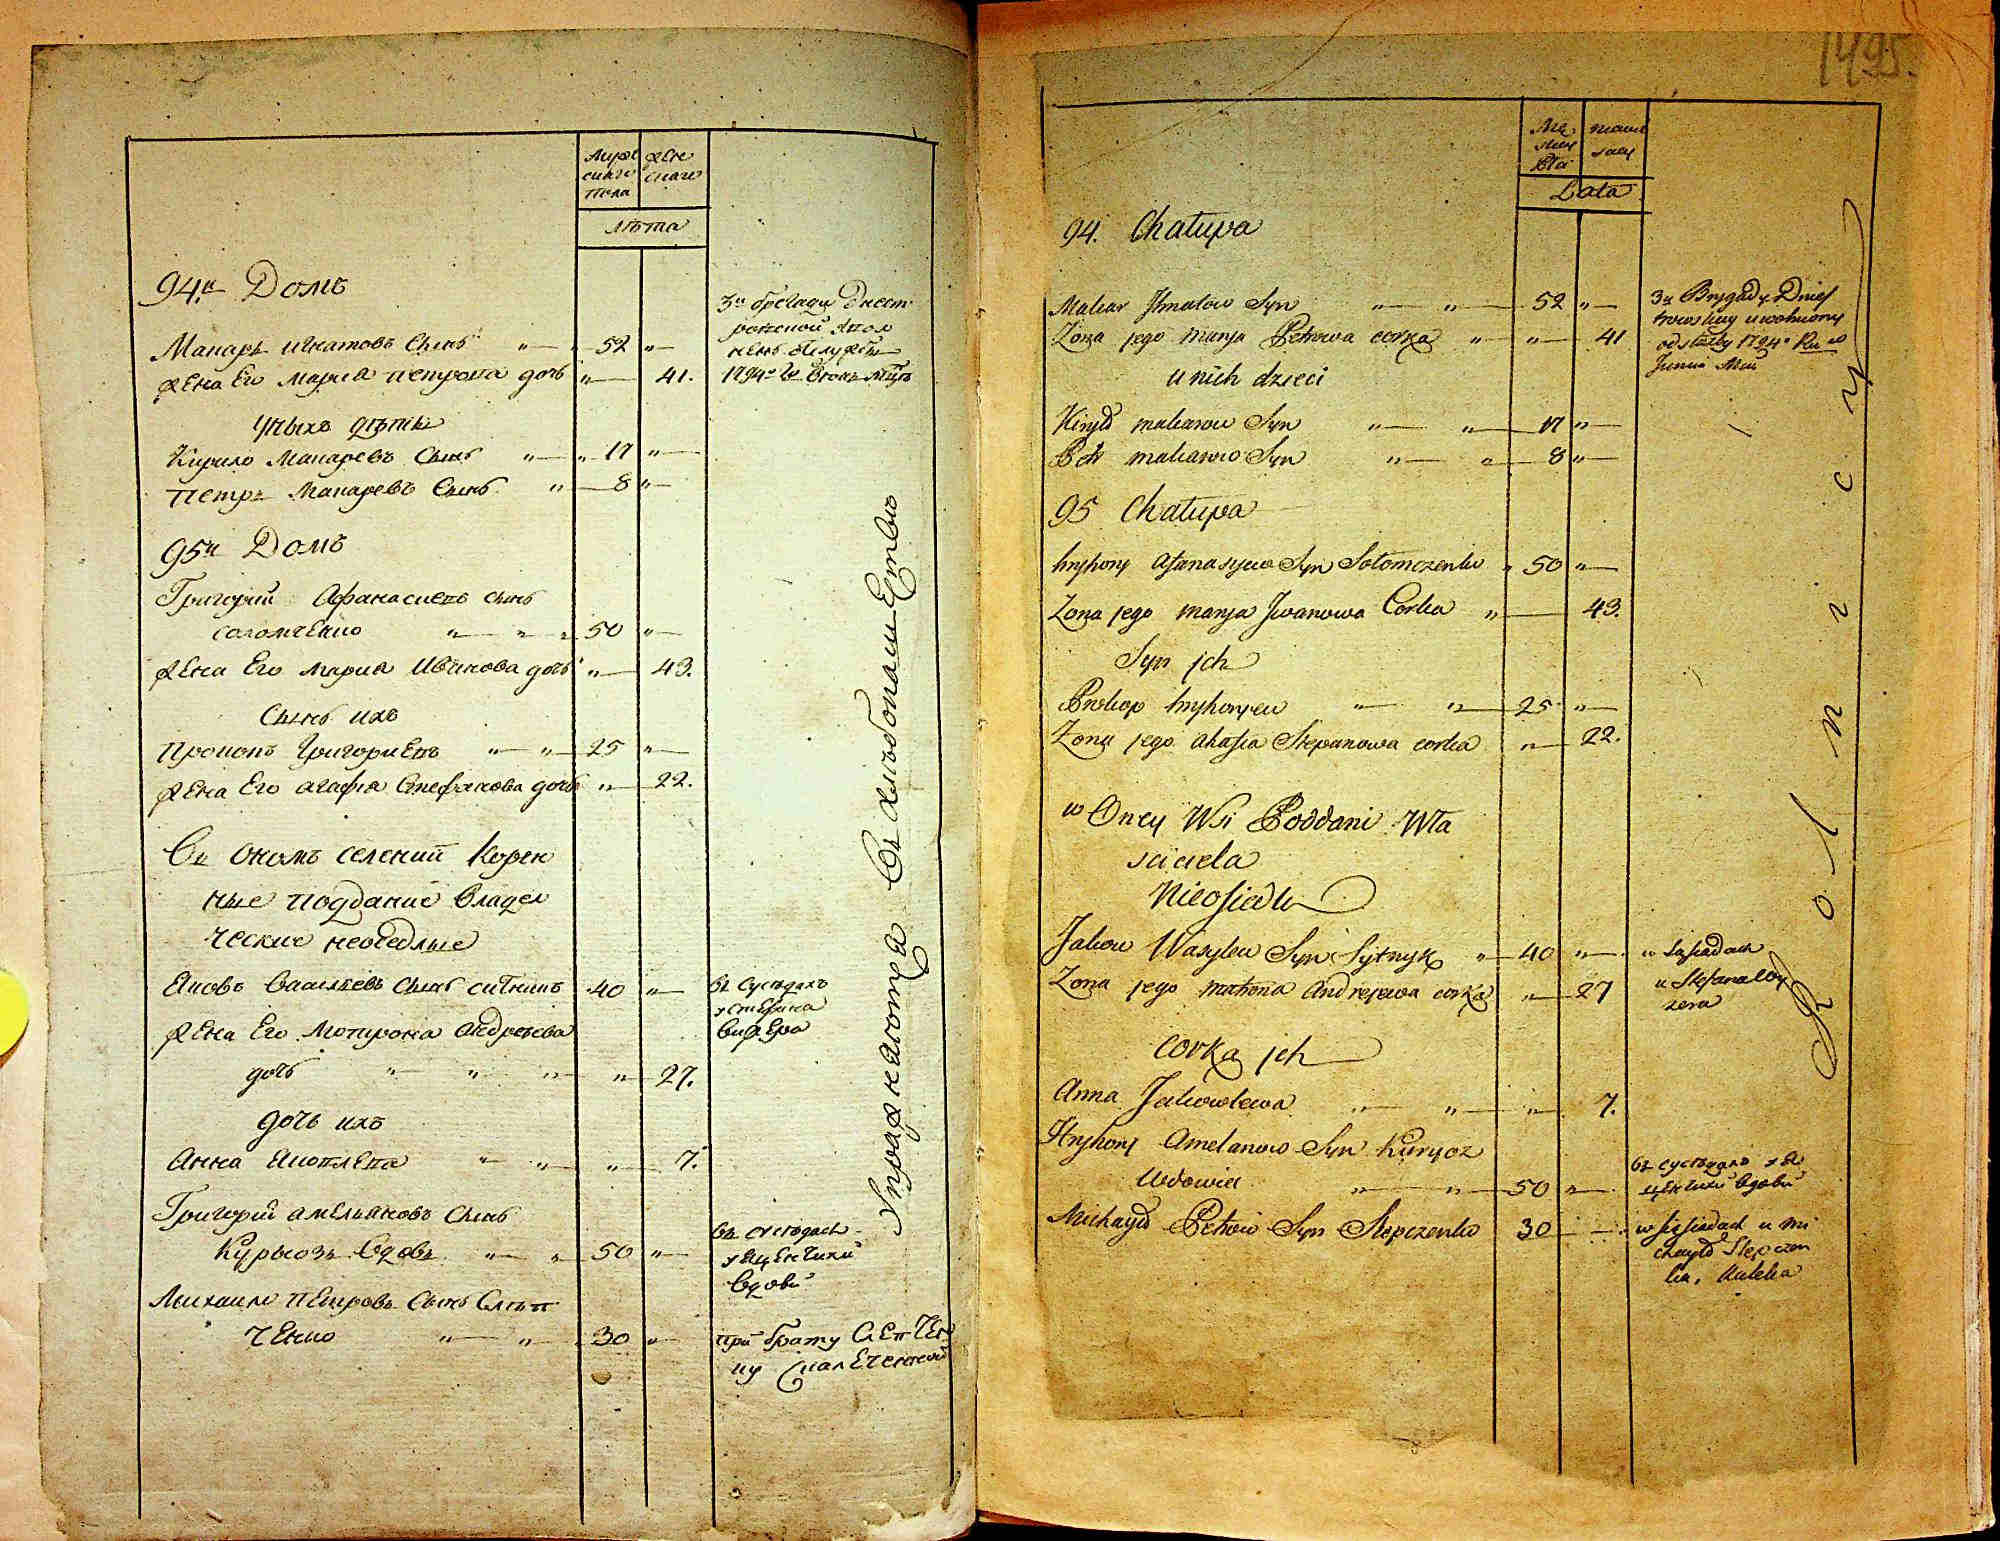 мужескаго пола
женскаго
лѣта
94й Домъ
Макаръ игнатовъ Сынъ " — " 52 " —
жена Его марія петрова дочь " — 41.
3й брегади днест
ровской
1794го
унихъ дѣти
Кирило Макаревъ Сынъ " — " 17 " —
Петръ Макаревъ Сынъ " — 8 " —
95й Домъ
Григорий Афанасиевъ сынъ
соломченко " — " " 50 " —
жена Его мария Иванова дочь " — 43.
Сынъ ихъ
Прокопъ Григориевъ " — " — 25 " —
жена Его агафия Стефанова дочь " — 22.
Въ ономъ селении Корен
ные поддание владел
ческие неоседлые
Яковъ Василиевъ сынъ ситникъ 40 " —
въ сусѣдахъ
у стефана
жена Его Мотрона Андрѣева
дочь " " " " — 27.
дочь ихъ
Анна Яковлева " — " — " — 7.
Григорий амельяновъ Сынъ
Куркозъ вдовъ " — " 50 " —
въ сусѣдахъ
вдови
Михаило Петровъ Сынъ Слѣп
ченко " — " 30 " —
при брату Слепчен
ку
Упражняются въ хлѣбопашествѣ
1495.
Męz
skey
Płci
Lata
94. Chałupa
Makar Ihnatow Syn " — " — 52 " —
Zona jego marya Petrowa corka " — " — 41
3y Brygady Dnies
trowskiey uwolniony
od służby 1794o Ru w
Junii Mcu
u nich dzieci
Kiryło makarow Syn " — " — 17 " —
Petr makarow Syn " — " — 8 " —
95 Chałupa
hryhory afanasyew Syn Sołomczenko " 50 " —
Zona jego marya Jwanowa Corka " — 43.
Syn jch
Prokop hryhoryew " — " — 25 " —
Zona jego ahafia Stepanowa corka " — 22.
w Oney Wsi Poddani Wła
sciciela
Nieosiedli
Jakow Wasylew Syn Sytnyk " — 40 " —
w sąsiadach
u Stefana
Zona jego matrona Andrejewa corka " — 27
corka jch
Anna Jakowlewa " — " — " — 7.
Hryhory Amelanow Syn Kurkoz
Wdowiec " — " — 50 " —
въ сусѣдахъ
вдови
Michayło Petrow Syn Slepczenko 30 — —
w sąsiadach u mi
chayła Slepczen
ka, Kaleka
Rolnicy